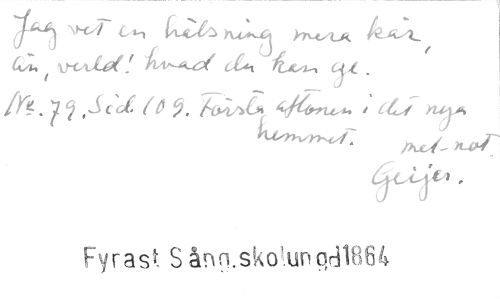 Jag vet en hälsning mera kär,
än, verld! hvad du kan ge.
No. 79. Sid. 109. Första aftonen i det nya
hemmet. met-not.
Geijer.
Fyrast Sång.skolungd1864